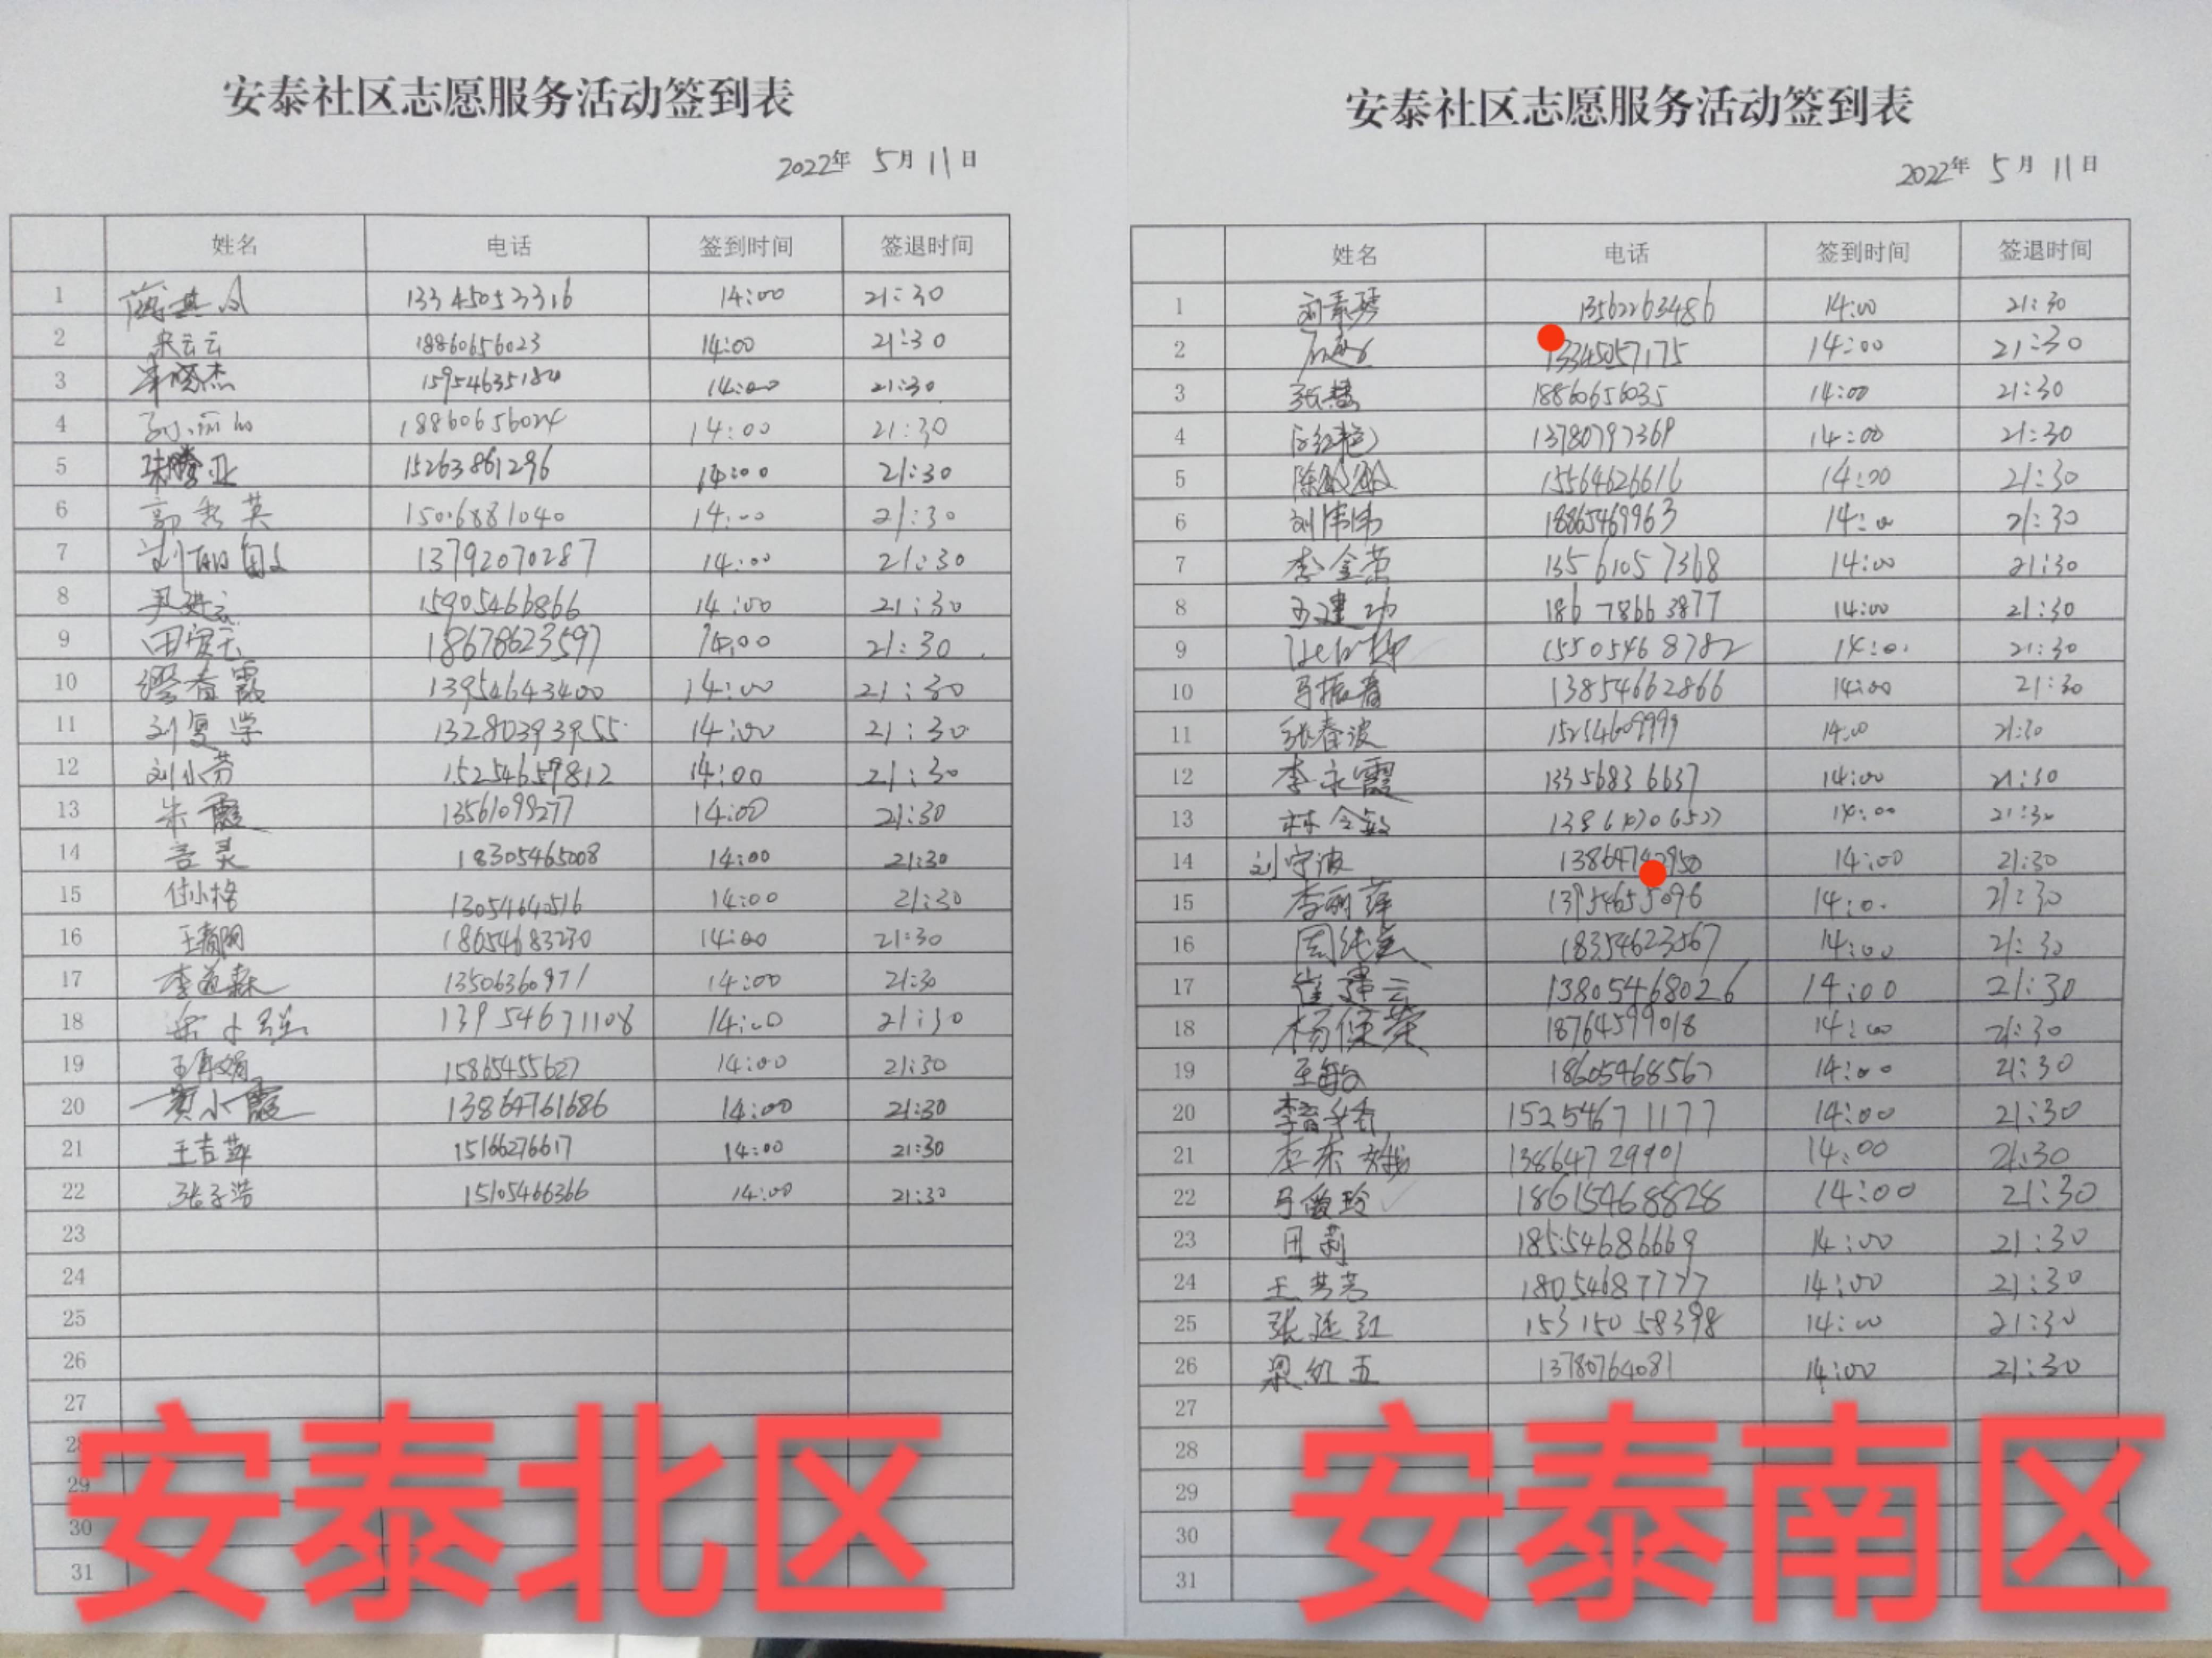 安泰社区志愿服务活动签到表
2022年 5月 11日
姓名 电话 签到时间 签退时间
1 13345053316 14:00 21:30
2 宋云云 18860656023 14:00 21:30
3 15954635180 14:00 21:30
4 18860656024 14:00 21:30
5 15263861296 14:00 21:30
6 郭秀英 15006881040 14:00 21:30
7 刘 13792070287 14:00 21:30
8 尹 15905466866 14:00 21:30
9 田 18678623597 14:00 21:30
10 缪春霞 13954643400 14:00 21:30
11 刘复学 13280393955 14:00 21:30
12 刘小芳 15254659812 14:00 21:30
13 朱霞 13561099277 14:00 21:30
14 言灵 18305465008 14:00 21:30
15 付小格 13054640516 14:00 21:30
16 王 18654683230 14:00 21:30
17 李道森 13506360971 14:00 21:30
18 13954671108 14:00 21:30
19 王 娟 15865455627 14:00 21:30
20 黄小霞 13864761686 14:00 21:30
21 王吉萍 15166276617 14:00 21:30
22 张子浩 15105466366 14:00 21:30
23
24
25
26
27
28
29
30
31
安泰北区
安泰社区志愿服务活动签到表
2022年 5月 11日
姓名 电话 签到时间 签退时间
1 刘素琴 13562263486 14:00 21:30
2 13345057175 14:00 21:30
3 张 18860656035 14:00 21:30
4 13780797369 14:00 21:30
5 陈敏敏 15564626616 14:00 21:30
6 刘伟伟 18865469963 14:00 21:30
7 李金荣 13561057368 14:00 21:30
8 王建功 18678663877 14:00 21:30
9 15505468782 14:00 21:30
10 马振春 13854662866 14:00 21:30
11 张春波 15254609999 14:00 21:30
12 李永霞 13356836637 14:00 21:30
13 林全敏 14:00 21:30
14 刘宁波 14:00 21:30
15 李丽萍 13954655096 14:00 21:30
16 周纯 18354623567 14:00 21:30
17 崔 云 13805468026 14:00 21:30
18 杨保荣 18764599018 14:00 21:30
19 王敏 18605468567 14:00 21:30
20 李 香 15254671177 14:00 21:30
21 李 13864729901 14:00 21:30
22 马俊玲 18615468828 14:00 21:30
23 田莉 18554686669 14:00 21:30
24 王芳芳 18054687777 14:00 21:30
25 张延红 15315058398 14:00 21:30
26 梁红玉 13780764081 14:00 21:30
27
28
29
30
31
安泰南区